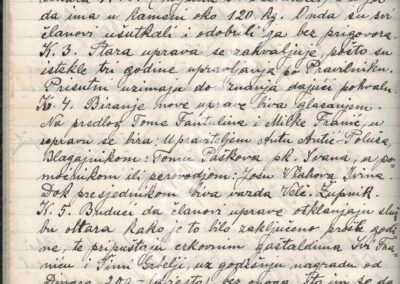 da ima u kamsm oko 120 kg. Onda su svi
članovi ušutkali i odobrili ga bez prigovora.
K. 3. Stara uprava se zahvaljuje, pošto su
istekle tri godine upravljanja po Pravilniku.
Prisutni uzimaju do znanja dajući pohvalu
K. 4. Biranje nove uprave biva glasanjem.
Na predlog Toma Fantulina i Milke Franić, u
upravu se bira: Upraviteljem Antu Antić-Poluša,
Blagajnikom: Tomu Paskova pk. Ivana, a po-
moćnikom ili perovodjom: Josu Vlahova Širina
Dok presjednikom biva vazda Več. Župnik.
K. 5. Budući da članovi uprave otklanjaju slu-
žbu oltara kako je to bilo zaključeno prošle godi-
ne, te pripuštaju crkovnim gastaldima Širi Fra-
niću i Šimi Grbelji, uz godišnju nagradu od
Dinara 200